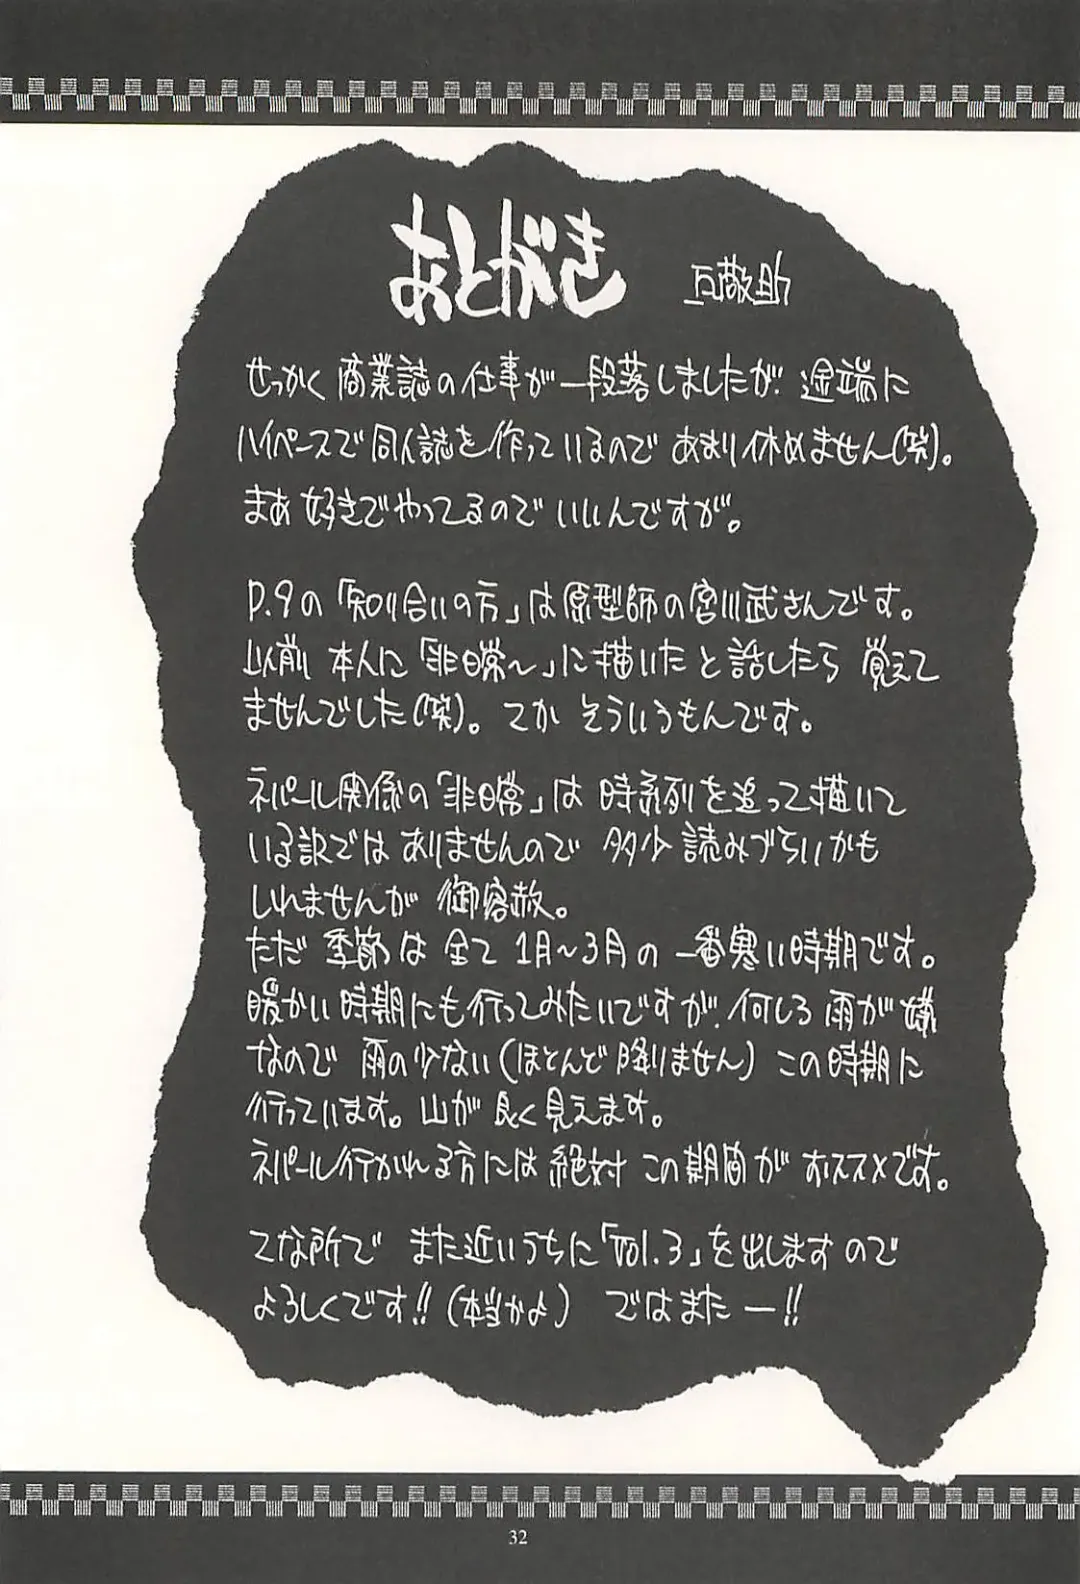 あとがき 石敬助
せっかく商業誌の仕事が一段落しましたが、途端に
ハイペースで同人誌を作っているのであまり休めません(笑)。
まあ好きでやってるのでいいんですが。
P.9の「知り合いの方」は原型師の宮川武さんです。
以前本人に「非日常〜」に描いたと話したら覚えて
ませんでした(笑)。てかそういうもんです。
ネパール関係の「非日常」は時系列を追って描いて
いる訳ではありませんので多少読みづらいかも
しれませんが御容赦。
ただ季節は全て1月〜3月の一番寒い時期です。
暖かい時期にも行ってみたいですが、何しろ雨が嫌
なので雨の少ない(ほとんど降りません)この時期に
行っています。山が良く見えます。
ネパール行かれる方には絶対この期間がオススメです。
てな所でまた近いうちに「Vol.3」を出しますので
よろしくです!!(本当かよ) ではまたー!!
32